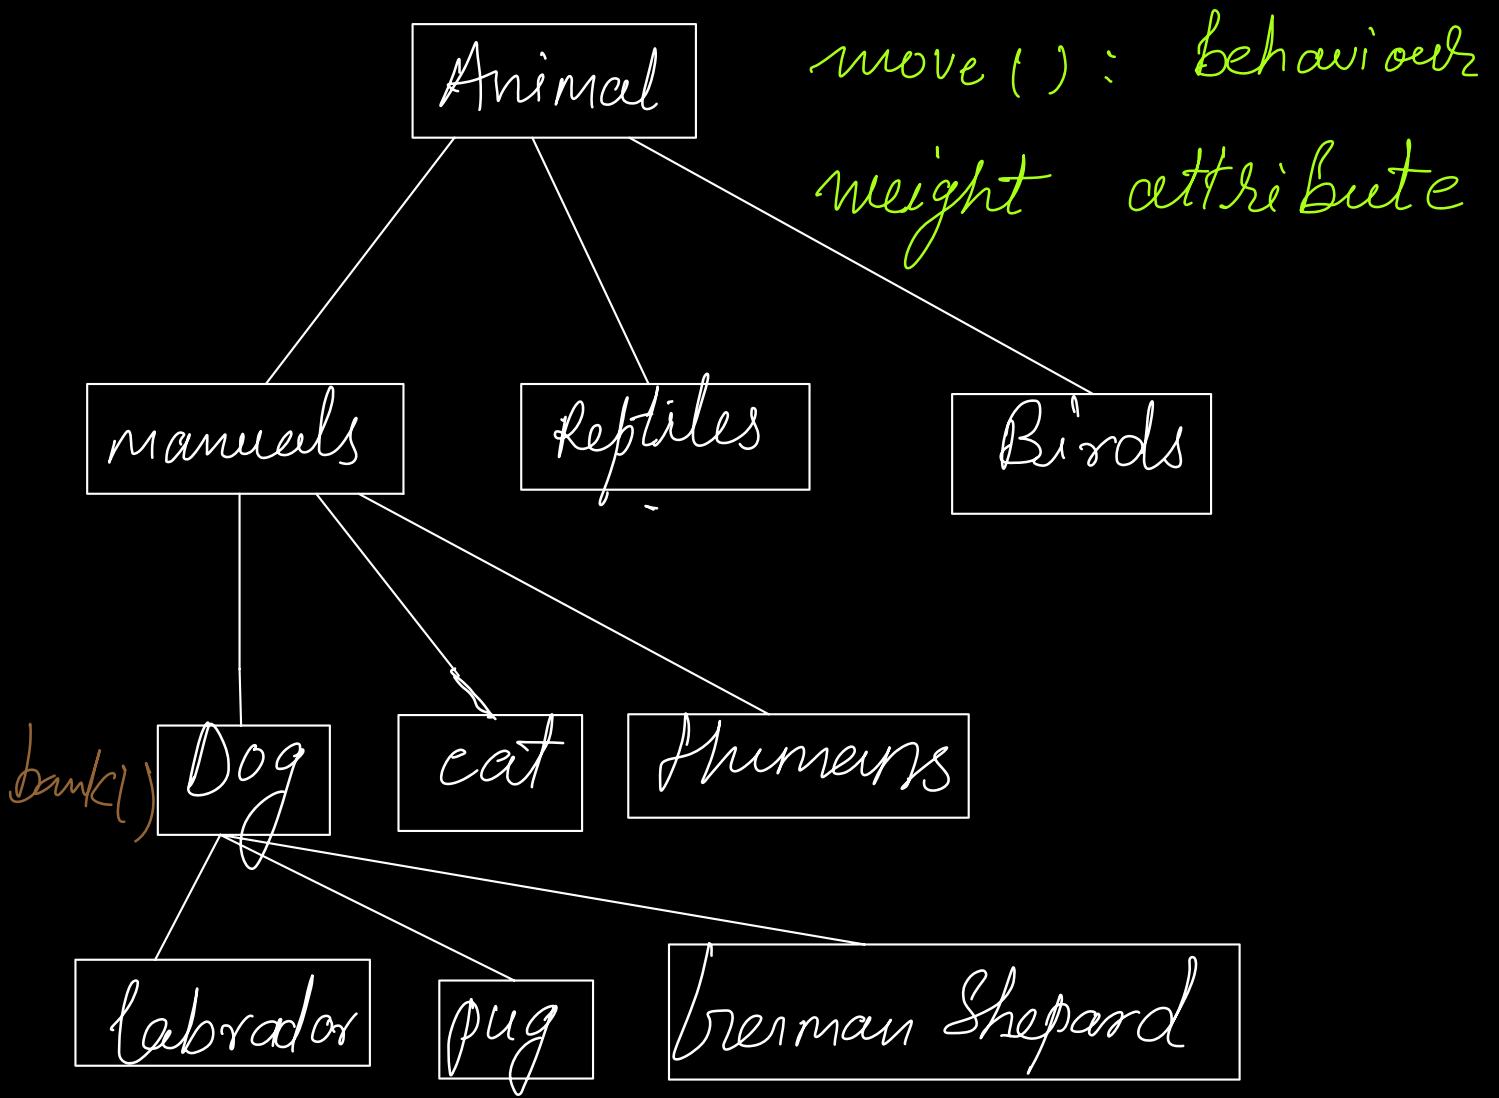 Animal
move() : behaviour
weight attribute
mammals
Reptiles
Birds
bark()
Dog
cat
Humans
labrador
pug
German Shepard